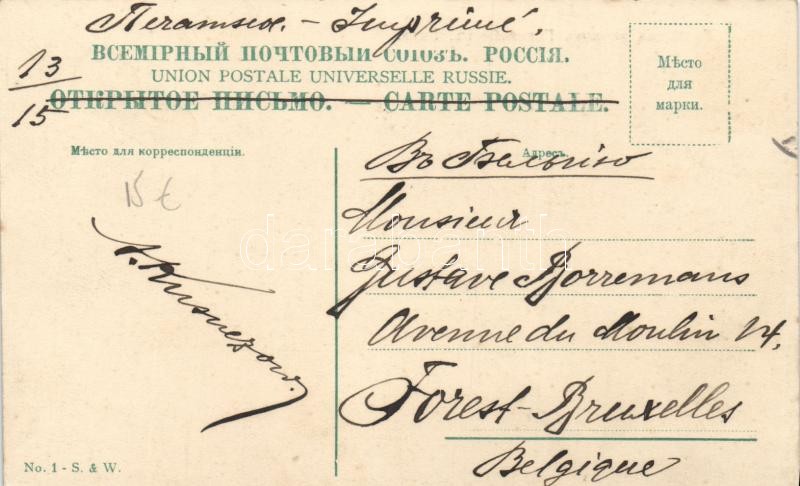 Печатное. - Imprimé.
13
15
ВСЕМІРНЫЙ ПОЧТОВЫЙ СОЮЗЪ. РОССІЯ.
UNION POSTALE UNIVERSELLE RUSSIE.
ОТКРЫТОЕ ПИСЬМО. — CARTE POSTALE.
Мѣсто
для
марки.
Мѣсто для корреспонденціи.
15 €
A. Kusnezow.
No. 1 - S. & W.
Адресъ.
Въ Бельгію
Monsieur
Gustave Borremans
Avenue du Moulin 14,
Forest-Bruxelles
Belgique
darabanth